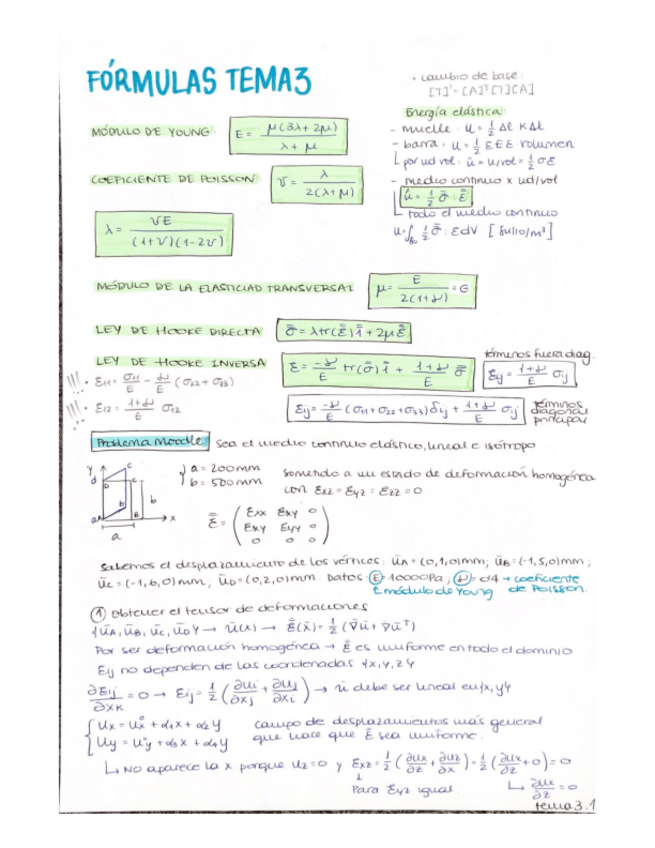 FÓRMULAS TEMA3
• cambio de base:
[T]' = [A]ᵀ[T][A]
Energía elástica:
- muelle: U = 1/2 Δl K Δl
- barra: U = 1/2 ε E ε · volumen
↳ por ud vol: û = U/vol = 1/2 σ ε
- medio continuo x ud/vol
û = 1/2 σ̿ : ε̿
↳ todo el medio continuo
U = ∫ 1/2 σ̿ : ε dV [Julio/m³]
MÓDULO DE YOUNG: E = μ(3λ + 2μ) / λ + μ
COEFICIENTE DE POISSON: ν = λ / 2(λ + μ)
λ = νE / (1+ν)(1-2ν)
MÓDULO DE LA ELASTICIAD TRANSVERSAL μ = E / 2(1+ν) = G
LEY DE HOOKE DIRECTA σ̿ = λ tr(ε̿) 1̿ + 2μ ε̿
LEY DE HOOKE INVERSA ε̿ = -ν/E tr(σ̿) 1̿ + 1+ν/E σ̿
términos fuera diag.
εij = 1+ν/E σij
!!! • ε11 = σ11/E - ν/E (σ22 + σ33)
!!! • ε12 = 1+ν/E σ12
εij = -ν/E (σ11 + σ22 + σ33) δij + 1+ν/E σij
términos diagonal principal
Problema Moodle Sea el medio continuo elástico, lineal e isótropo
y d D C b a A B x a b
a = 200mm
b = 500mm
sometido a un estado de deformación homogénea
con εxz = εyz = εzz = 0
ε̿ = ( εxx εxy 0
εxy εyy 0
0 0 0 )
Sabemos el desplazamiento de los vértices: ūA = (0,1,0)mm; ūB = (-1,5,0)mm;
ūC = (-1,6,0)mm; ūD = (0,2,0)mm. Datos: E = 10000Pa; ν = 0'4 → coeficiente
↳ módulo de Young de Poisson.
① obtener el tensor de deformaciones
{ūA, ūB, ūC, ūD} → ū(x̄) → ε̿(x̄) = 1/2 (∇̄ū + ∇̄ūᵀ)
Por ser deformación homogénea → ε̿ es uniforme en todo el dominio
Eij no dependen de las coordenadas {x, y, z}
∂εij/∂xk = 0 → εij = 1/2 (∂ui/∂xj + ∂uj/∂xi) → ū debe ser lineal en {x, y}
{ Ux = U°x + α1x + α2y campo de desplazamientos más general
Uy = U°y + α3x + α4y que hace que ε̿ sea uniforme.
↳ No aparece la x porque Uz = 0 y εxz = 1/2 (∂ux/∂z + ∂uz/∂x) = 1/2 (∂ux/∂z + 0) = 0
Para εyz igual. ↳ ∂ux/∂z = 0
tema 3.1